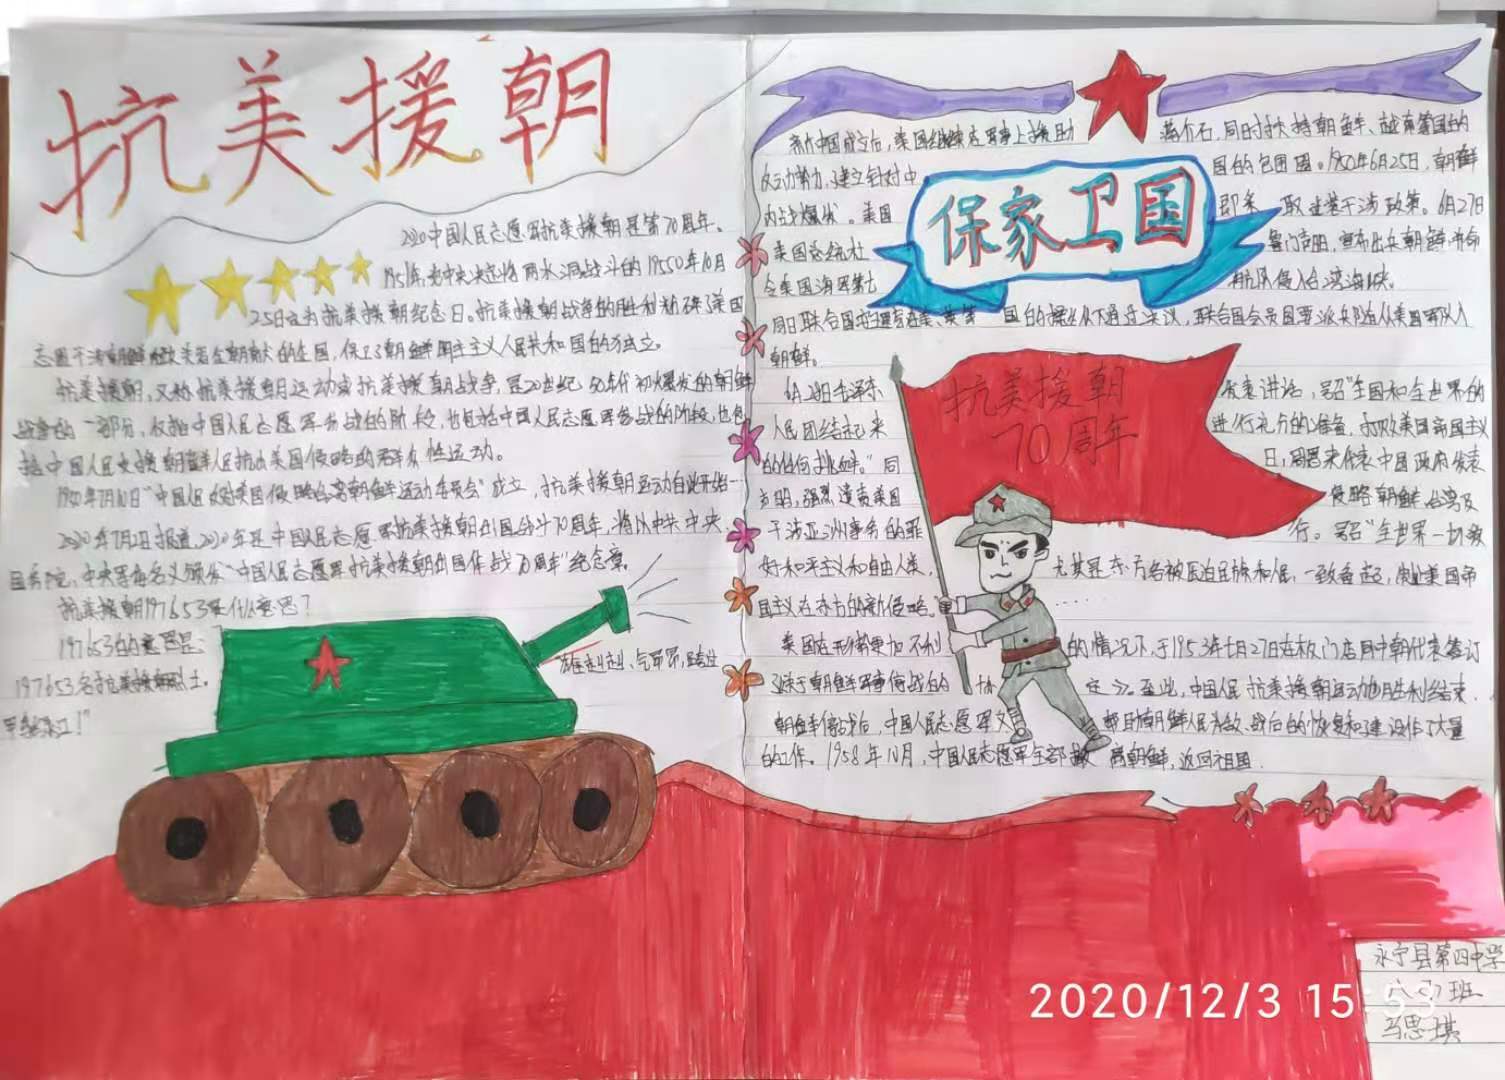 抗美援朝
2020中国人民志愿军抗美援朝是第70周年。
1951年,党中央决定将两水洞战斗的19550年10月
25日立为抗美援朝纪念日。抗美援朝战争的胜利粉碎了美国
的全国,保卫了朝鲜民主主义人民共和国的独立。
抗美援朝,又称抗美援朝运动或抗美援朝战争,是20世纪50年代初爆发的朝鲜
战争的一部分,仅指中国人民志愿军参战的阶段,也包括中国人民志愿军参战的阶段,也包
括中国人民支援朝鲜人民抗击美国侵略的群众性运动。
1950年7月10日"中国人民反对美国侵略台湾朝鲜运动委员会"成立,抗美援朝运动自此开始
2020年7月2日报道,2020年是中国人民志愿军抗美援朝出国战斗70周年,将以中共中央、
国务院,中央军委名义颁发"中国人民志愿军抗美援朝出国作战70周年"纪念章。
抗美援朝197653是什么意思?
197653的意思是:
雄赳赳、气昂昂,跨过
197653名抗美援朝烈士。
鸭绿江!"
新中国成立后,美国继续在军事上援助 蒋介石,同时扶持朝鲜、越南等国的
反动势力,建立针对中 国的包围圈。1950年6月25日,朝鲜
保家卫国
内战爆发。美国 即条 取武装干涉政策。6月27日
美国总统杜 鲁门声明,宣布出兵朝鲜,并命
令美国海军第七 舰队侵入台湾海峡。
国的操纵下通过决议,联合国会员国要派兵随从美国军队入
朝鲜。
抗美援朝
70周年
6月28日毛泽东 发表讲话,号召"全国和全世界的
人民团结起来 进行充分的准备,打败美国帝国主义
的任何挑衅。"同 日,周恩来代表中国政府发表
声明,强烈谴责美国 侵略朝鲜、台湾及
干涉亚洲事务的罪 行。号召"全世界一切爱
好和平正义和自由人类, 尤其是东方各被压迫民族和人民,一致奋起,制止美国帝
国主义在东方的新侵略。 ……
美国在形势更加不利 的情况下,于1953年七月27日在板门店同中朝代表签订
了关于朝鲜军事停战的 协 定》。至此,中国人民抗美援朝运动也胜利结束.
朝鲜停战后,中国人民志愿军又 帮助朝鲜人民为敌、战后的恢复和建设作了大量
的工作。1958年10月,中国人民志愿军全部撤 离朝鲜,返回祖国.
永宁县第四中学
班
马思琪
2020/12/3 15:53